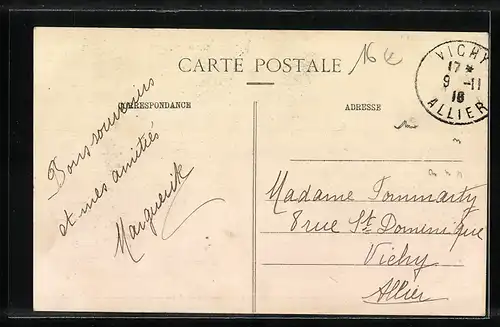 CARTE POSTALE
CORRESPONDANCE
ADRESSE
VICHY
17 *
9 -11
16
ALLIER
16 €
Bons souvenirs
et mes amitiés
Marguerite
Madame Tommarty
8 rue St Dominique
Vichy
Allier